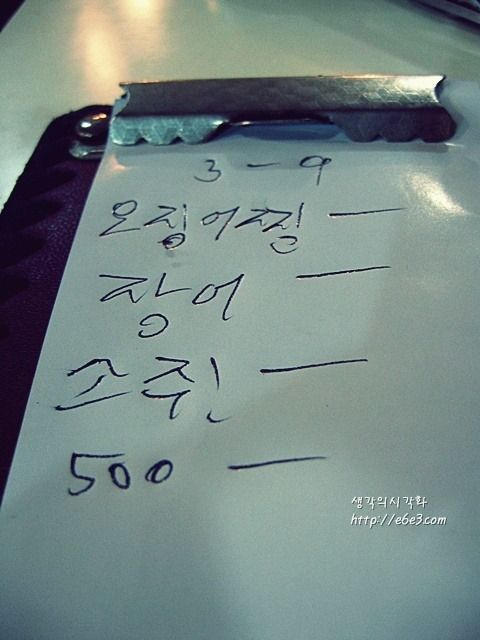 3 - 9
오징어찜 —
장어 —
소쥔 —
500 —
생각의시각화
http://e6e3.com